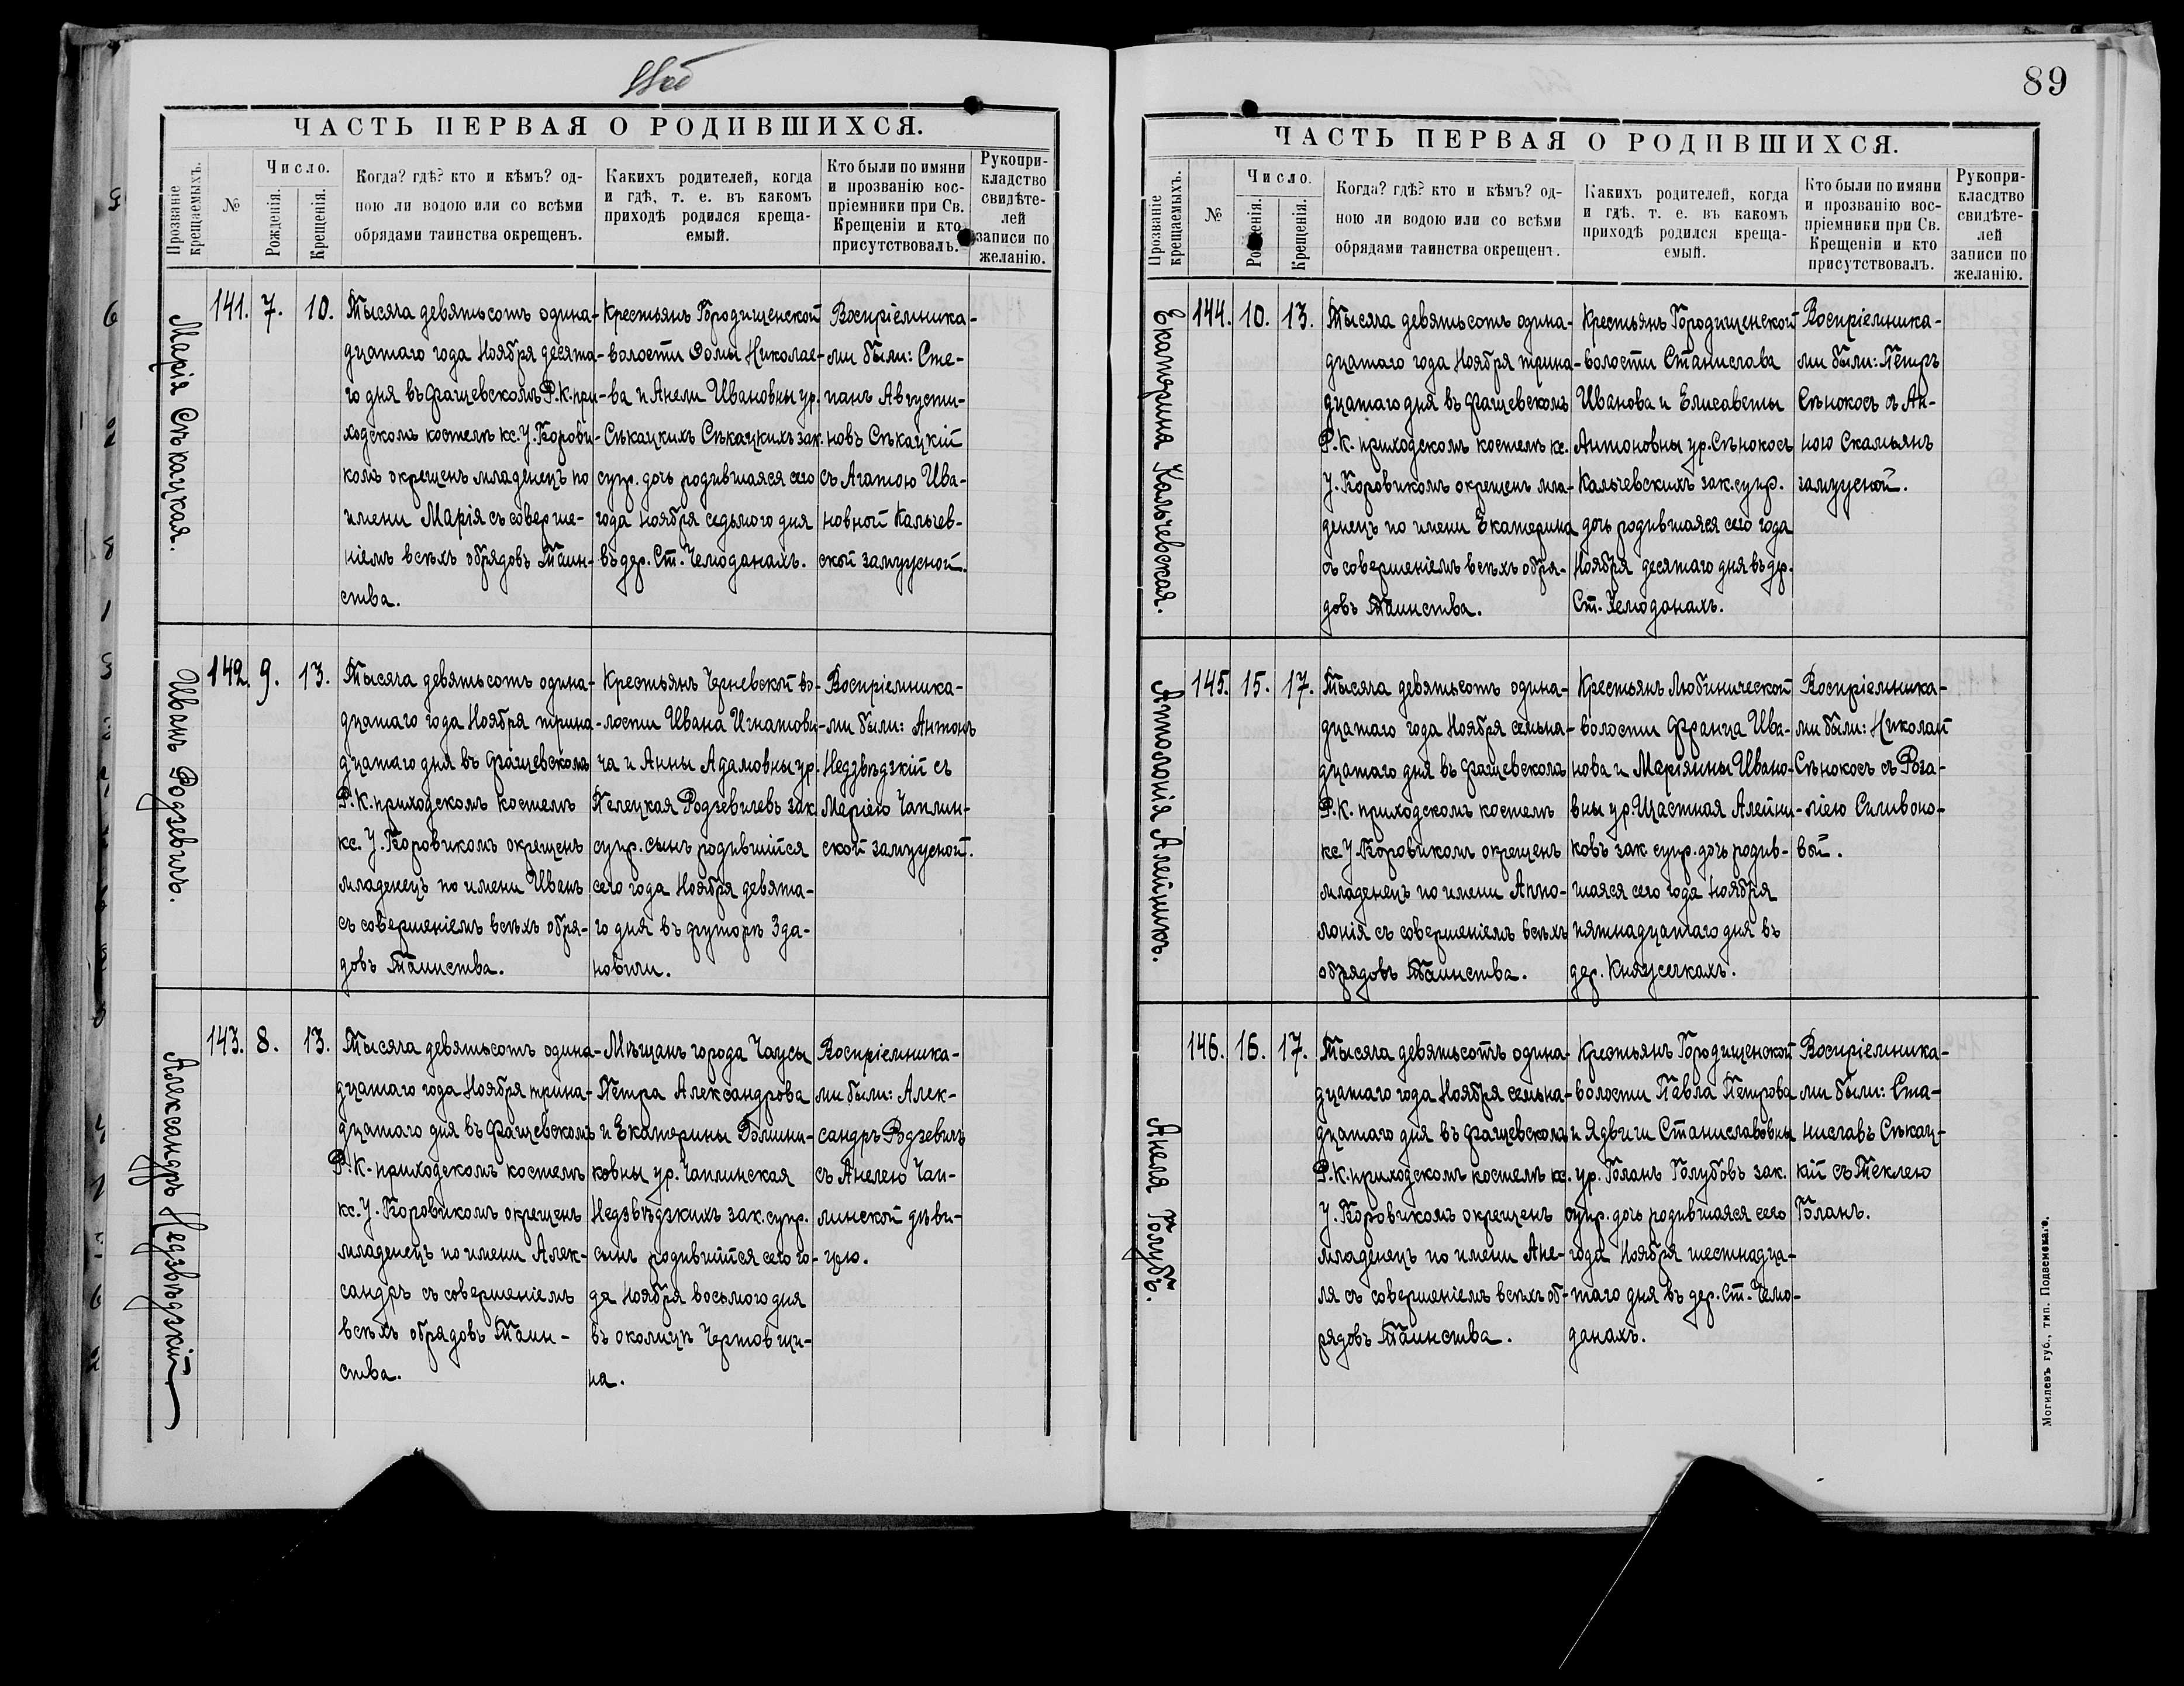 ЧАСТЬ ПЕРВАЯ О РОДИВШИХСЯ.
Прозваніе крещаемыхъ.
№
Число.
Рожденія.
Крещенія.
Когда? гдѣ? кто и кѣмъ? од-
ною ли водою или со всѣми
обрядами таинства окрещенъ.
Какихъ родителей, когда
и гдѣ, т. е. въ какомъ
приходѣ родился креща-
емый.
Кто были по имяни
и прозванію вос-
пріемники при Св.
Крещеніи и кто
присутствовалъ.
Рукопри-
кладство
свидѣте-
лей
записи по
желанію.
Марія Сѣкацкая.
141. 7. 10.
Тысяча девятьсотъ одина-
дцатаго года Ноября десята-
го дня въ Фащевскомъ Р.К. при-
ходскомъ костелѣ кс. У. Борови-
комъ окрещенъ младенецъ по
имени Марія съ соверше-
ніемъ всѣхъ обрядовъ Таин-
ства.
Крестьянъ Городищенской
волости Ѳомы Николае-
ва и Анели Ивановны ур.
Сѣкацкихъ Сѣкацкихъ зак.
супр. дочь родившаяся сего
года ноября седьмого дня
въ дер. Ст. Чемоданахъ.
Воспріемника-
ми были: Сте-
панъ Августи-
новъ Сѣкацкій
съ Агатою Ива-
новной Кальчев-
ской замужной.
Иванъ Родзевичъ.
142. 9. 13.
Тысяча девятьсотъ одина-
дцатаго года Ноября трина-
дцатаго дня въ Фащевскомъ
Р.К. приходскомъ костелѣ
кс. У. Боровикомъ окрещенъ
младенецъ по имени Иванъ
съ совершеніемъ всѣхъ обря-
довъ Таинства.
Крестьянъ Черневской во-
лости Ивана Игнатови-
ча и Анны Адамовны ур.
Пелецкая Родзевичевъ зак.
супр. сынъ родившійся
сего года Ноября девята-
го дня въ футорѣ Зда-
новичи.
Воспріемника-
ми были: Антонъ
Недзвѣдзкій съ
Маріею Чаплин-
ской замужной.
Александръ Недзвѣдзкій
143. 8. 13.
Тысяча девятьсотъ одина-
дцатаго года Ноября трина-
дцатаго дня въ Фащевскомъ
Р.К. приходскомъ костелѣ
кс. У. Боровикомъ окрещенъ
младенецъ по имени Алек-
сандръ съ совершеніемъ
всѣхъ обрядовъ Таин-
ства.
Мѣщанъ города Чаусы
Петра Александрова
и Екатерины Домини-
ковны ур. Чаплинская
Недзвѣдзкихъ зак. супр.
сынъ родившійся сего го-
да Ноября восьмого дня
въ околицѣ Чертовщи-
на.
Воспріемника-
ми были: Алек-
сандръ Родзевичъ
съ Анелею Чап-
линской дѣви-
цею.
89
ЧАСТЬ ПЕРВАЯ О РОДИВШИХСЯ.
Прозваніе крещаемыхъ.
№
Число.
Рожденія.
Крещенія.
Когда? гдѣ? кто и кѣмъ? од-
ною ли водою или со всѣми
обрядами таинства окрещенъ.
Какихъ родителей, когда
и гдѣ, т. е. въ какомъ
приходѣ родился креща-
емый.
Кто были по имяни
и прозванію вос-
пріемники при Св.
Крещеніи и кто
присутствовалъ.
Рукопри-
класдтво
свидѣте-
лей
записи по
желанію.
Екатерина Кальчевская.
144. 10. 13.
Тысяча девятьсотъ одина-
дцатаго года Ноября трина-
дцатаго дня въ Фащевскомъ
Р.К. приходскомъ костелѣ кс.
У. Боровикомъ окрещенъ мла-
денецъ по имени Екатерина
съ совершеніемъ всѣхъ обря-
довъ Таинства.
Крестьянъ Городищенской
волости Станислава
Иванова и Елисаветы
Антоновны ур. Сѣнокосъ
Кальчевскихъ зак. супр.
дочь родившаяся сего года
Ноября десятаго дня въ дер.
Ст. Чемоданахъ.
Воспріемника-
ми были: Петръ
Сѣнокосъ съ Ан-
ною Скамьянъ
замужной.
Апполонія Алейникъ.
145. 15. 17.
Тысяча девятьсотъ одина-
дцатаго года Ноября семьна-
дцатаго дня въ Фащевскомъ
Р.К. приходскомъ костелѣ
кс. У. Боровикомъ окрещенъ
младенецъ по имени Аппо-
лонія съ совершеніемъ всѣхъ
обрядовъ Таинства.
Крестьянъ Любинической
волости Франца Ива-
нова и Маріянны Ивано-
вны ур. Щастная Алейни-
ковъ зак. супр. дочь родив-
шаяся сего года Ноября
пятнадцатаго дня въ
дер. Княжечкахъ.
Воспріемника-
ми были: Николай
Сѣнокосъ съ Роза-
ліею Симвоно-
вой.
Анеля Голубъ.
146. 16. 17.
Тысяча девятьсотъ одина-
дцатаго года Ноября семьна-
дцатаго дня въ Фащевскомъ
Р.К. приходскомъ костелѣ кс.
У. Боровикомъ окрещенъ
младенецъ по имени Ане-
ля съ совершеніемъ всѣхъ об-
рядовъ Таинства.
Крестьянъ Городищенской
волости Павла Петрова
и Ядвиги Станиславовны
ур. Голанъ Голубовъ зак.
супр. дочь родившаяся сего
года Ноября шестнадца-
таго дня въ дер. Ст. Чемо-
данахъ.
Воспріемника-
ми были: Ста-
ниславъ Сѣкац-
кій съ Теклею
Голанъ.
Могилевъ губ., тип. Подвемскаго.